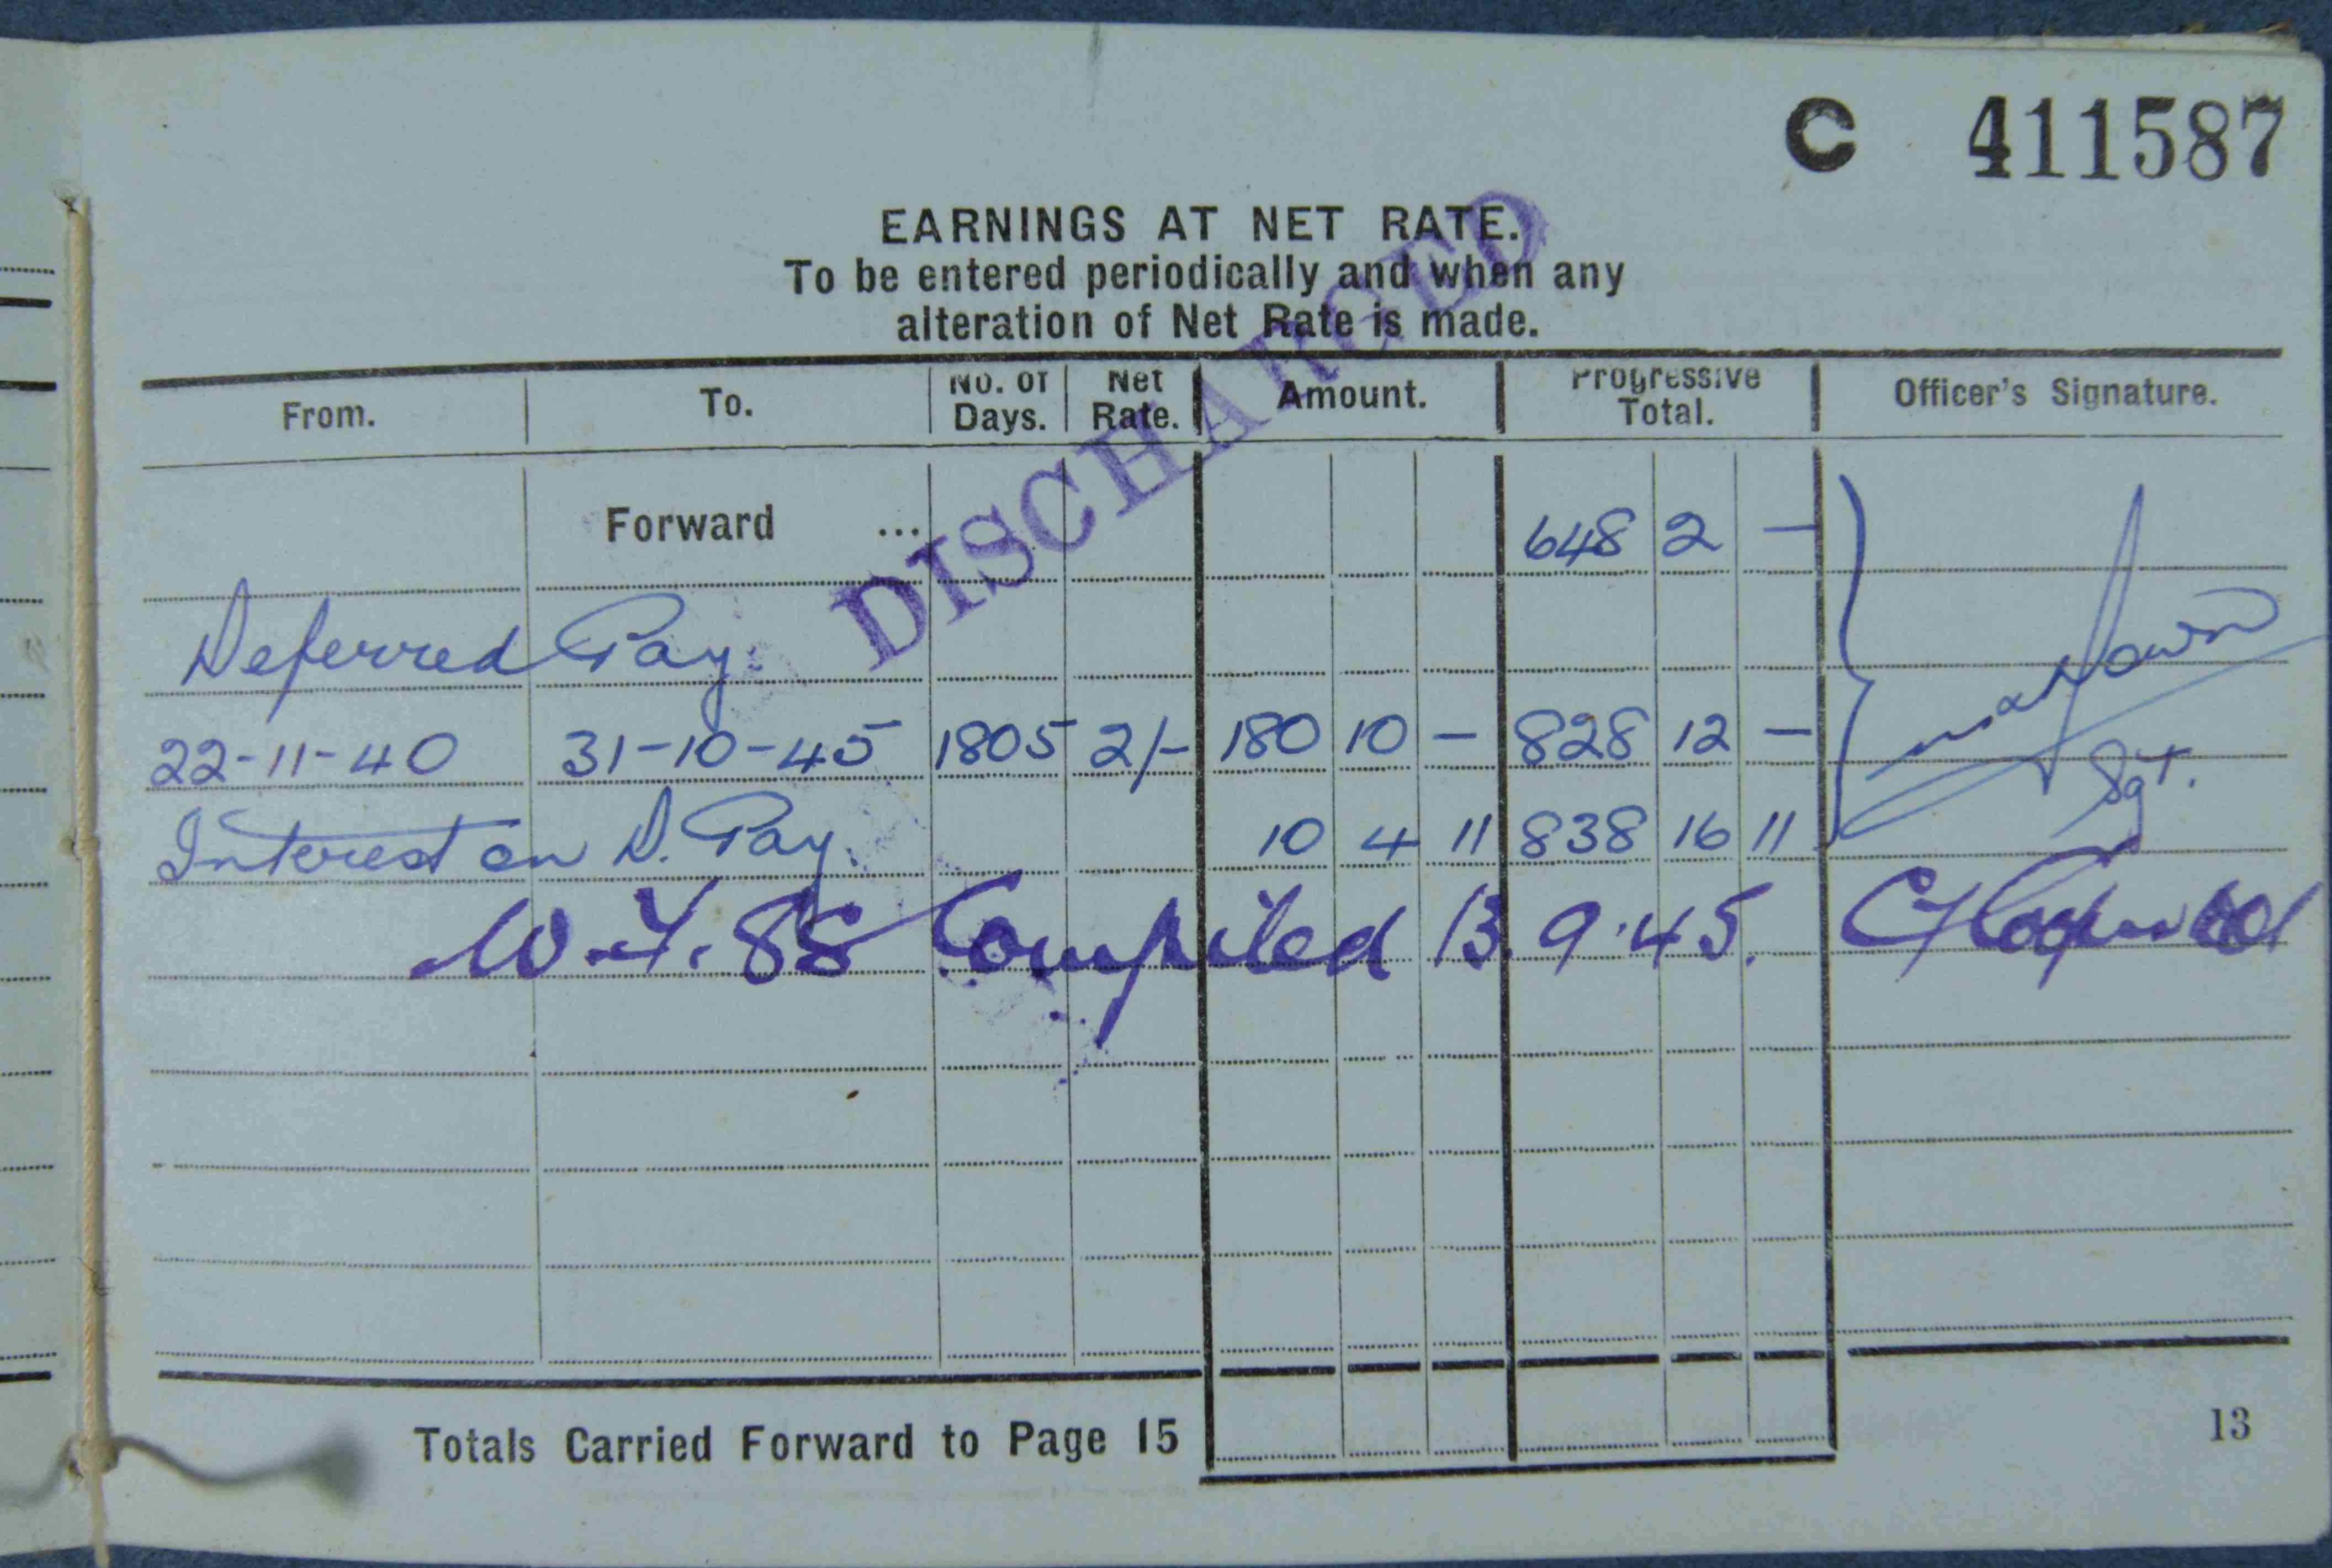 C 411587
EARNINGS AT NET RATE.
To be entered periodically and when any
alteration of Net Rate is made.
DISCHARGED
From. To. No. of Days. Net Rate. Amount. Progressive Total. Officer's Signature.
Forward ... 648 2 —
Deferred Pay.
22-11-40 31-10-45 1805 2/- 180 10 — 828 12 —
Sgt.
Interest on D. Pay. 10 4 11 838 16 11
W.Y. 88 Compiled 13.9.45.
Totals Carried Forward to Page 15
13